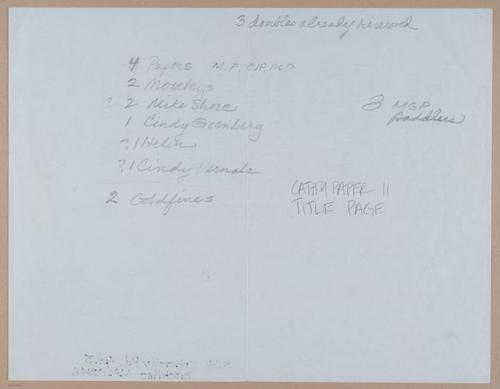 3 doubles already reserved
4 Papers M.F, CJP,
2 Moseleys
? 2 Mike Shore
1 Cindy Greenberg
?1 Helen
?1 Cindy
2 Goldfines
8 MGP
paddlers
CATHY PAPER 11
TITLE PAGE